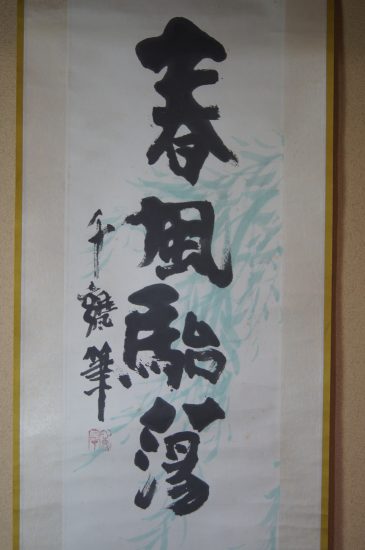 春風駘蕩
千㐂筆